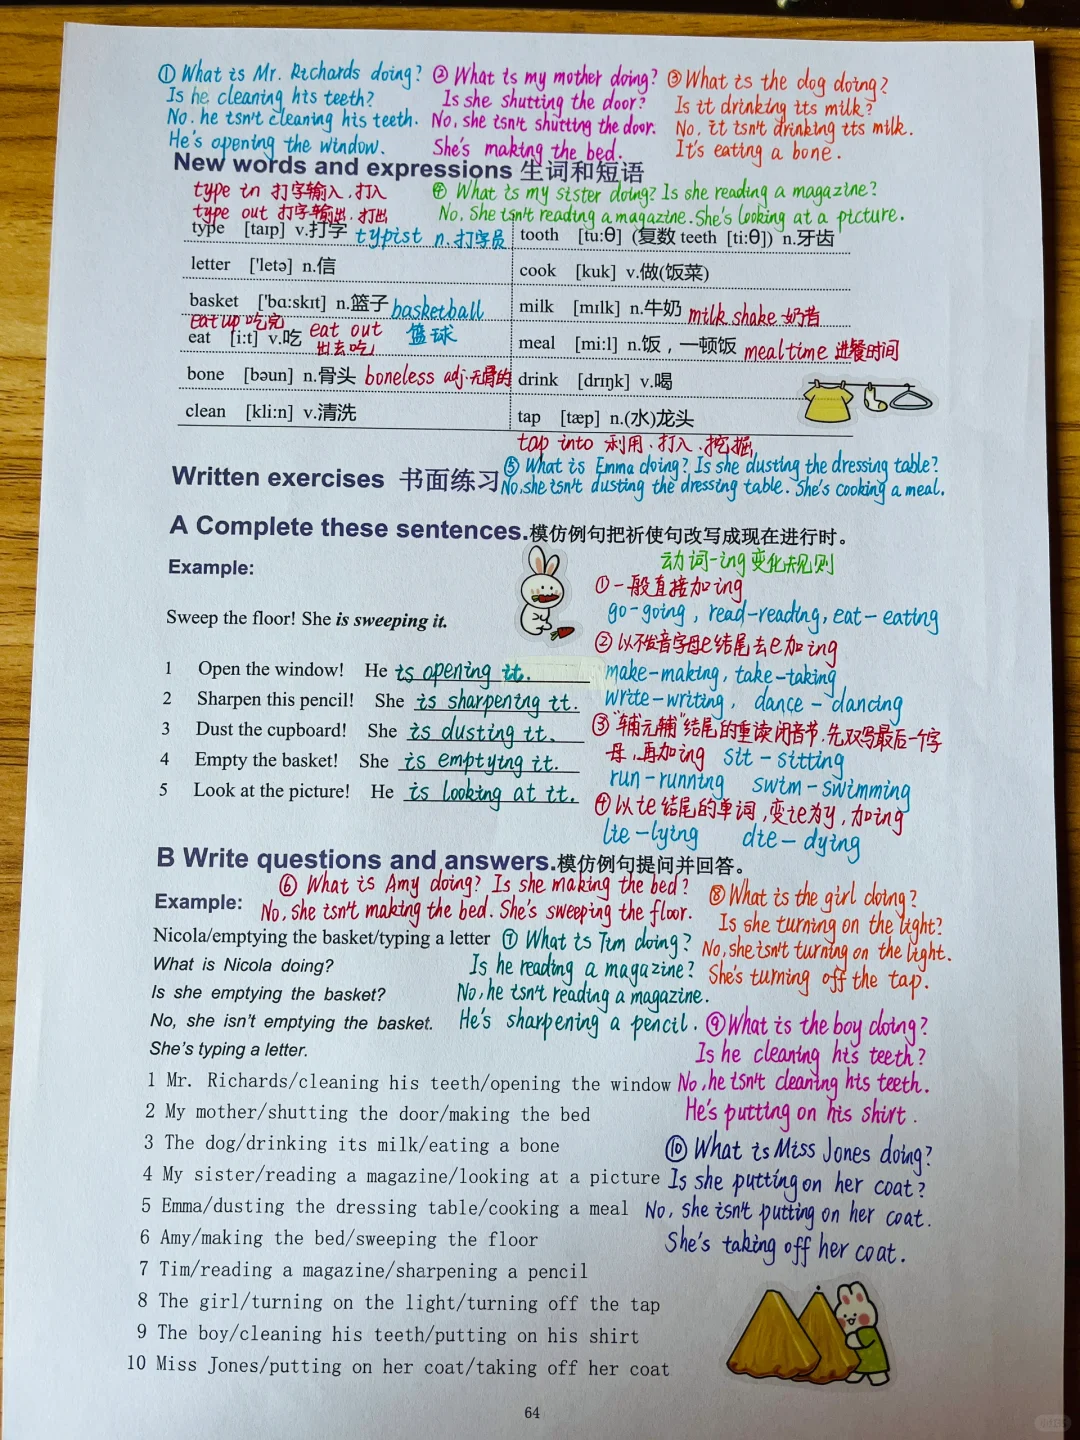 ① What is Mr. Richards doing?
Is he cleaning his teeth?
No. he isn't cleaning his teeth.
He's opening the window.
② What is my mother doing?
Is she shutting the door?
No, she isn't shutting the door.
She's making the bed.
③ What is the dog doing?
Is it drinking its milk?
No, it isn't drinking its milk.
It's eating a bone.
New words and expressions 生词和短语
type in 打字输入、打入
type out 打字输出、打出
④ What is my sister doing? Is she reading a magazine?
No, She isn't reading a magazine. She's looking at a picture.
type [taɪp] v.打字 typist n.打字员
tooth [tu:θ] (复数 teeth [ti:θ]) n.牙齿
letter ['letə] n.信
cook [kuk] v.做(饭菜)
basket ['bɑ:skɪt] n.篮子 basketball
篮球
milk [mɪlk] n.牛奶 milk shake 奶昔
eat up 吃完
eat [i:t] v.吃 eat out
出去吃
meal [mi:l] n.饭，一顿饭 mealtime 进餐时间
bone [bəun] n.骨头 boneless adj.无骨的
drink [drɪŋk] v.喝
clean [kli:n] v.清洗
tap [tæp] n.(水)龙头
tap into 利用、打入、挖掘
Written exercises 书面练习
⑤ What is Emma doing? Is she dusting the dressing table?
No, she isn't dusting the dressing table. She's cooking a meal.
A Complete these sentences.模仿例句把祈使句改写成现在进行时。
Example:
Sweep the floor! She is sweeping it.
1 Open the window! He is opening it.
2 Sharpen this pencil! She is sharpening it.
3 Dust the cupboard! She is dusting it.
4 Empty the basket! She is emptying it.
5 Look at the picture! He is looking at it.
动词-ing变化规则
①一般直接加ing
go-going, read-reading, eat-eating
②以不发音字母e结尾去e加ing
make-making, take-taking
write-writing, dance-dancing
③"辅元辅"结尾的重读闭音节,先双写最后一个字
母,再加ing sit-sitting
run-running swim-swimming
④以ie结尾的单词,变ie为y,加ing
lie-lying die-dying
B Write questions and answers.模仿例句提问并回答。
⑥ What is Amy doing? Is she making the bed?
No, she isn't making the bed. She's sweeping the floor.
Example:
Nicola/emptying the basket/typing a letter
What is Nicola doing?
Is she emptying the basket?
No, she isn't emptying the basket.
She's typing a letter.
⑦ What is Tim doing?
Is he reading a magazine?
No, he isn't reading a magazine.
He's sharpening a pencil.
⑧ What is the girl doing?
Is she turning on the light?
No, she isn't turning on the light.
She's turning off the tap.
⑨ What is the boy doing?
Is he cleaning his teeth?
No, he isn't cleaning his teeth.
He's putting on his shirt.
⑩ What is Miss Jones doing?
Is she putting on her coat?
No, she isn't putting on her coat.
She's taking off her coat.
1 Mr. Richards/cleaning his teeth/opening the window
2 My mother/shutting the door/making the bed
3 The dog/drinking its milk/eating a bone
4 My sister/reading a magazine/looking at a picture
5 Emma/dusting the dressing table/cooking a meal
6 Amy/making the bed/sweeping the floor
7 Tim/reading a magazine/sharpening a pencil
8 The girl/turning on the light/turning off the tap
9 The boy/cleaning his teeth/putting on his shirt
10 Miss Jones/putting on her coat/taking off her coat
64